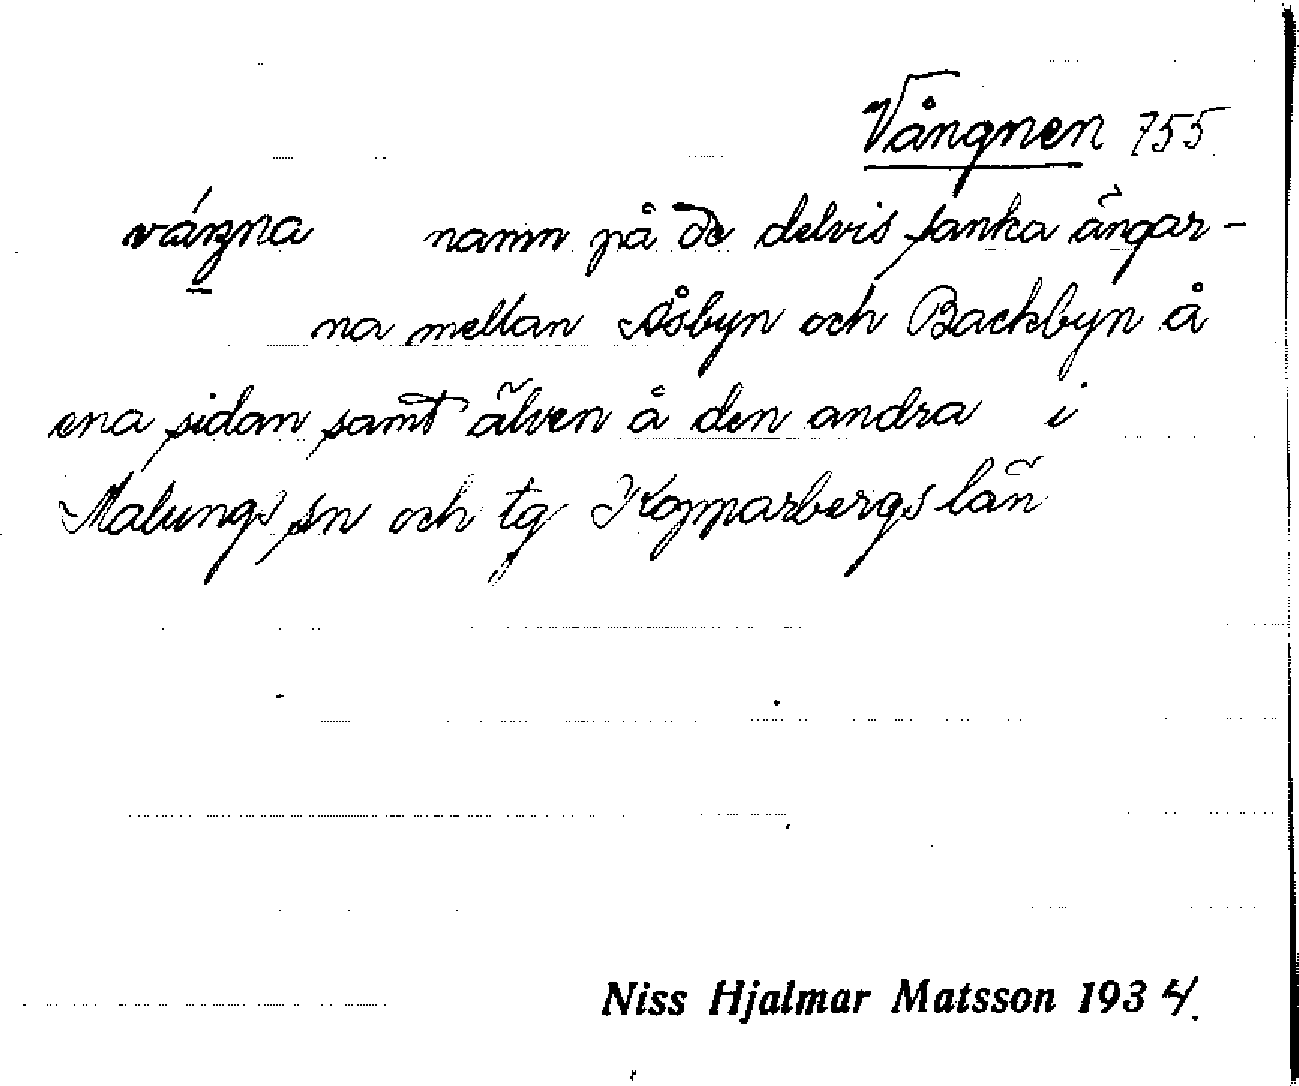 Vångnen 755.
vángna namn på de delvis sanka ängar-
na mellan Åsbyn och Backbyn å
ena sidan samt älven å den andra i
Malungs sn och tg Kopparbergs län
Niss Hjalmar Matsson 1934.